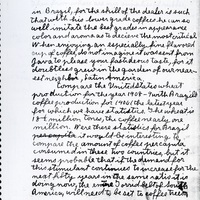 in Brazil, for the skill of the dealer is such
that with his lower grade coffee he can so
well imitate the best grades in appearance
color and aroma as to decieve the most critical.
When enjoying an especially fine flavored
cup of coffee, do not imagine it was brought from
Java to please your fastidious taste, for it
doubtless grew in the garden of our near-
est neighbor, Latin America.
Compare the United States wheat
production for the year 1908 - with Brazil's
coffee production for 1906, the latest year
for which we have statistics. The wheat is
18 + million tons, the coffee nearly one
million. Were there statistics for Brazil
it would be interesting to
compare the amount of coffee per capita
consumed in these two countries, but it
seems probable that if the demand for
this stimulant continues to increase for the
next fifty years in the same ratio it is
doing now, the entire Torrid belt of South
America will need to be set to coffee trees